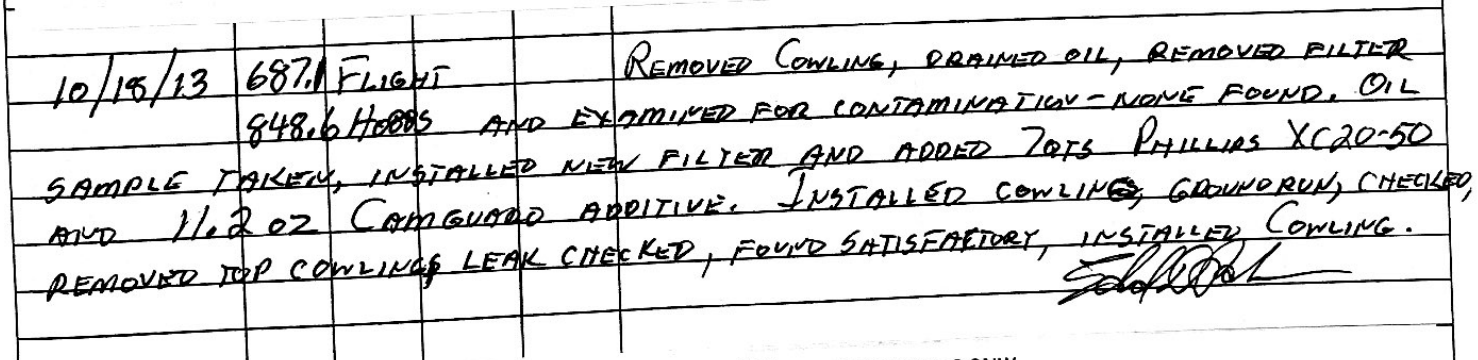 10/18/13 687.1 FLIGHT REMOVED COWLING, DRAINED OIL, REMOVED FILTER
848.6 HOBBS AND EXAMINED FOR CONTAMINATION - NONE FOUND. OIL
SAMPLE TAKEN, INSTALLED NEW FILTER AND ADDED 7QTS PHILLIPS XC20-50
AND 11.2 OZ CAMGUARD ADDITIVE. INSTALLED COWLING, GROUNDRUN, CHECKED,
REMOVED TOP COWLING, LEAK CHECKED, FOUND SATISFACTORY, INSTALLED COWLING.